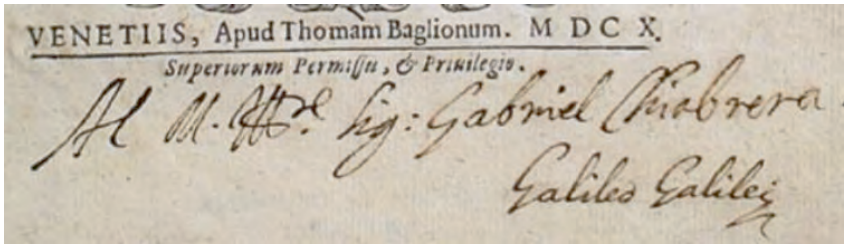 VENETIIS, Apud Thomam Baglionum. M DC X.
Superiorum Permissu, & Priuilegio.
Al M. Ill.re Sig: Gabriel Chiabrera.
Galileo Galilei